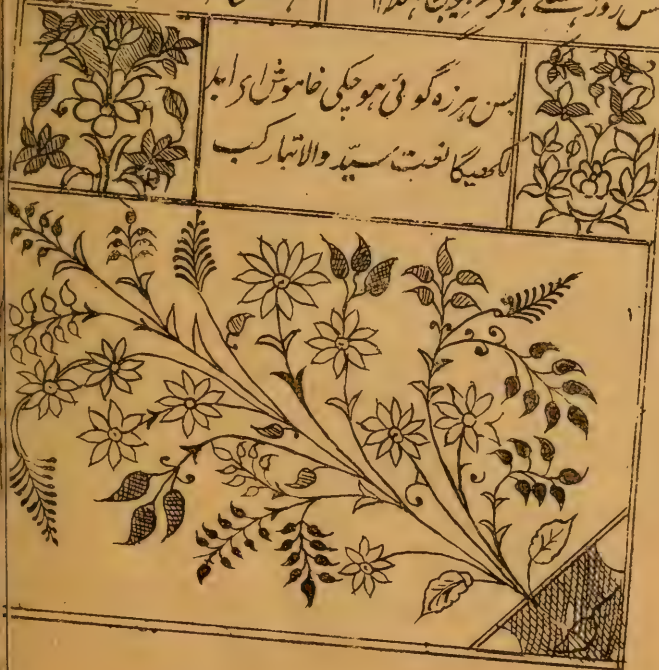 بس ہرزہ گوئی ہو چکی خاموش ای زاہد
لکھیگا نعت سیّد والا تبار کب